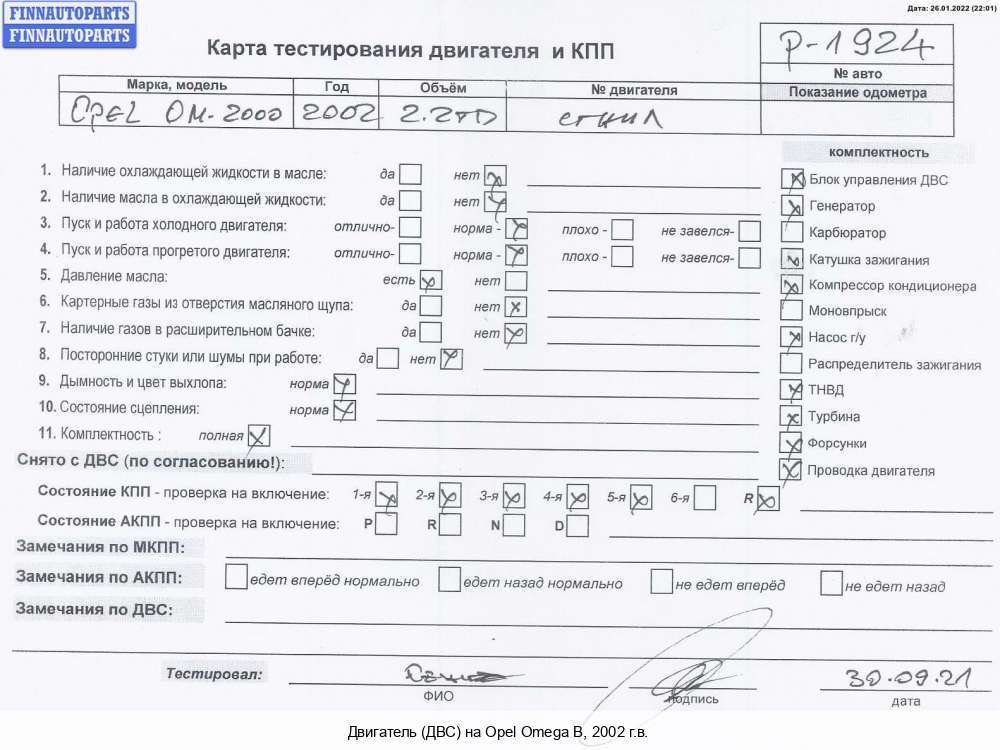 Дата: 26.01.2022 (22:01)
FINNAUTOPARTS
FINNAUTOPARTS
Карта тестирования двигателя и КПП
P-1924
№ авто
Марка, модель Год Объём № двигателя Показание одометра
OPEL OM-2000 2002 2.2TD сгнил
комплектность
1. Наличие охлаждающей жидкости в масле: да нет
Блок управления ДВС
2. Наличие масла в охлаждающей жидкости: да нет
Генератор
3. Пуск и работа холодного двигателя: отлично- норма - плохо - не завелся-
Карбюратор
4. Пуск и работа прогретого двигателя: отлично- норма - плохо - не завелся-
Катушка зажигания
5. Давление масла: есть нет
Компрессор кондиционера
6. Картерные газы из отверстия масляного щупа: да нет
Моновпрыск
7. Наличие газов в расширительном бачке: да нет
Насос г/у
8. Посторонние стуки или шумы при работе: да нет
Распределитель зажигания
9. Дымность и цвет выхлопа: норма
ТНВД
10. Состояние сцепления: норма
Турбина
11. Комплектность : полная
Форсунки
Снято с ДВС (по согласованию!):
Проводка двигателя
Состояние КПП - проверка на включение: 1-я 2-я 3-я 4-я 5-я 6-я R
Состояние АКПП - проверка на включение: P R N D
Замечания по МКПП:
Замечания по АКПП: едет вперёд нормально едет назад нормально не едет вперёд не едет назад
Замечания по ДВС:
Тестировал: 30.09.21
ФИО подпись дата
Двигатель (ДВС) на Opel Omega B, 2002 г.в.